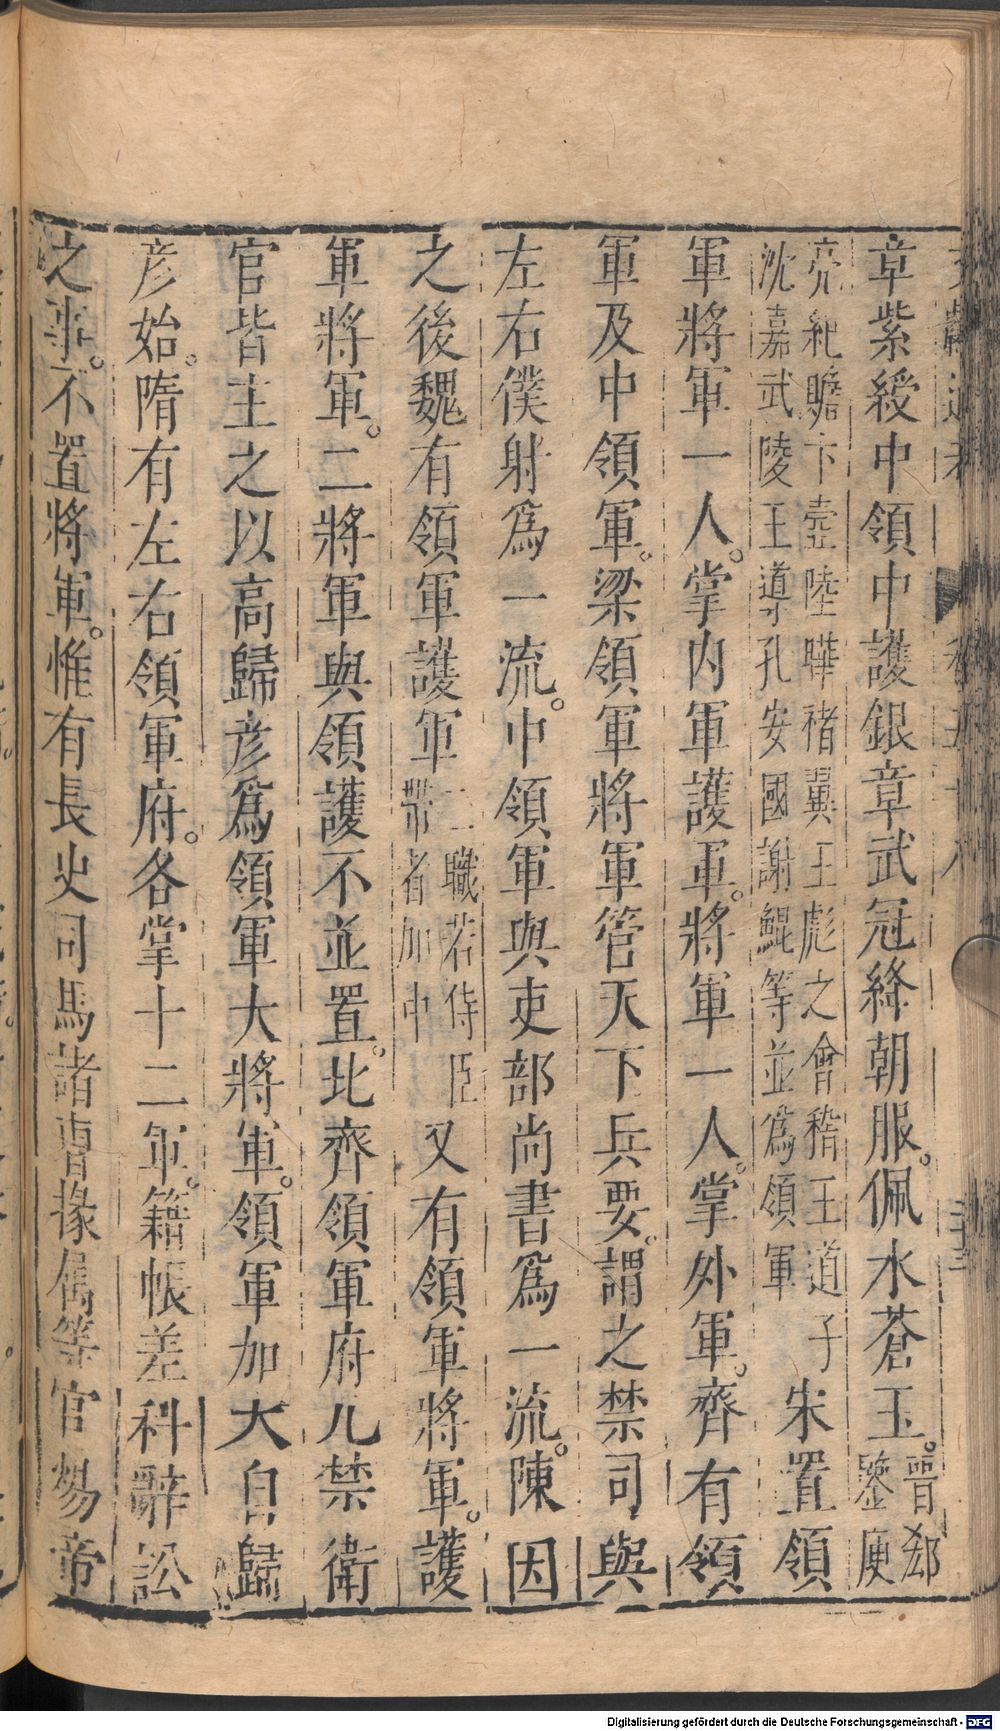 章紫綬中領中護銀章武冠絳朝服。佩水蒼玉。晉郄鑒庾
亮紀瞻卞壼陸曄褚翼王彪之會稽王道子
沈嘉武陵王導孔安國謝鯤等並爲領軍
宋置領
軍將軍一人。掌内軍護軍。將軍一人。掌外軍。齊有領
軍及中領軍。梁領軍將軍管天下兵要。謂之禁司與
左右僕射爲一流。中領軍與吏部尚書爲一流。陳因
之後魏有領軍護軍二職若侍臣帶者加中又有領軍將軍。護
軍將軍。二將軍與領護不並置。北齊領軍府凡禁衛
官皆主之以高歸彥爲領軍大將軍。領軍加大自歸
彥始。隋有左右領軍府。各掌十二軍。籍帳差科辭訟
之事。不置將軍。惟有長史司馬諸曹掾屬等官煬帝
Digitalisierung gefördert durch die Deutsche Forschungsgemeinschaft - DFG